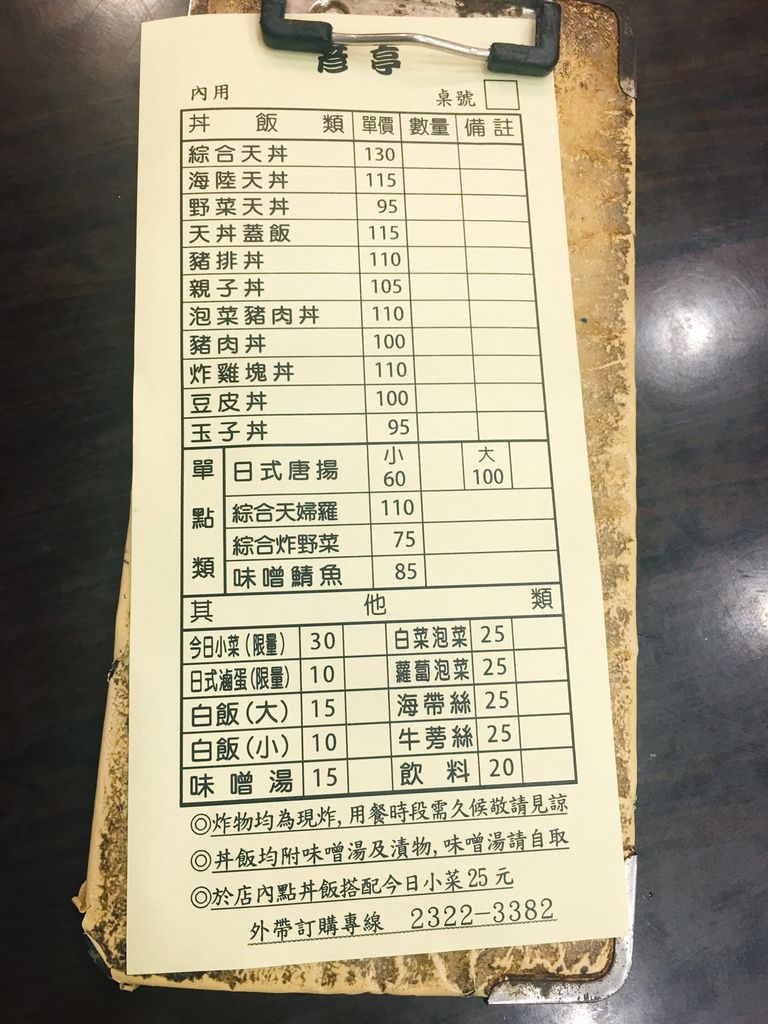 彥亭
內用 桌號
丼飯類 單價 數量 備註
綜合天丼 130
海陸天丼 115
野菜天丼 95
天丼蓋飯 115
豬排丼 110
親子丼 105
泡菜豬肉丼 110
豬肉丼 100
炸雞塊丼 110
豆皮丼 100
玉子丼 95
單點類
日式唐揚 小 60 大 100
綜合天婦羅 110
綜合炸野菜 75
味噌鯖魚 85
其他類
今日小菜(限量) 30 白菜泡菜 25
日式滷蛋(限量) 10 蘿蔔泡菜 25
白飯(大) 15 海帶絲 25
白飯(小) 10 牛蒡絲 25
味噌湯 15 飲料 20
◎炸物均為現炸,用餐時段需久候敬請見諒
◎丼飯均附味噌湯及漬物,味噌湯請自取
◎於店內點丼飯搭配今日小菜25元
外帶訂購專線 2322-3382